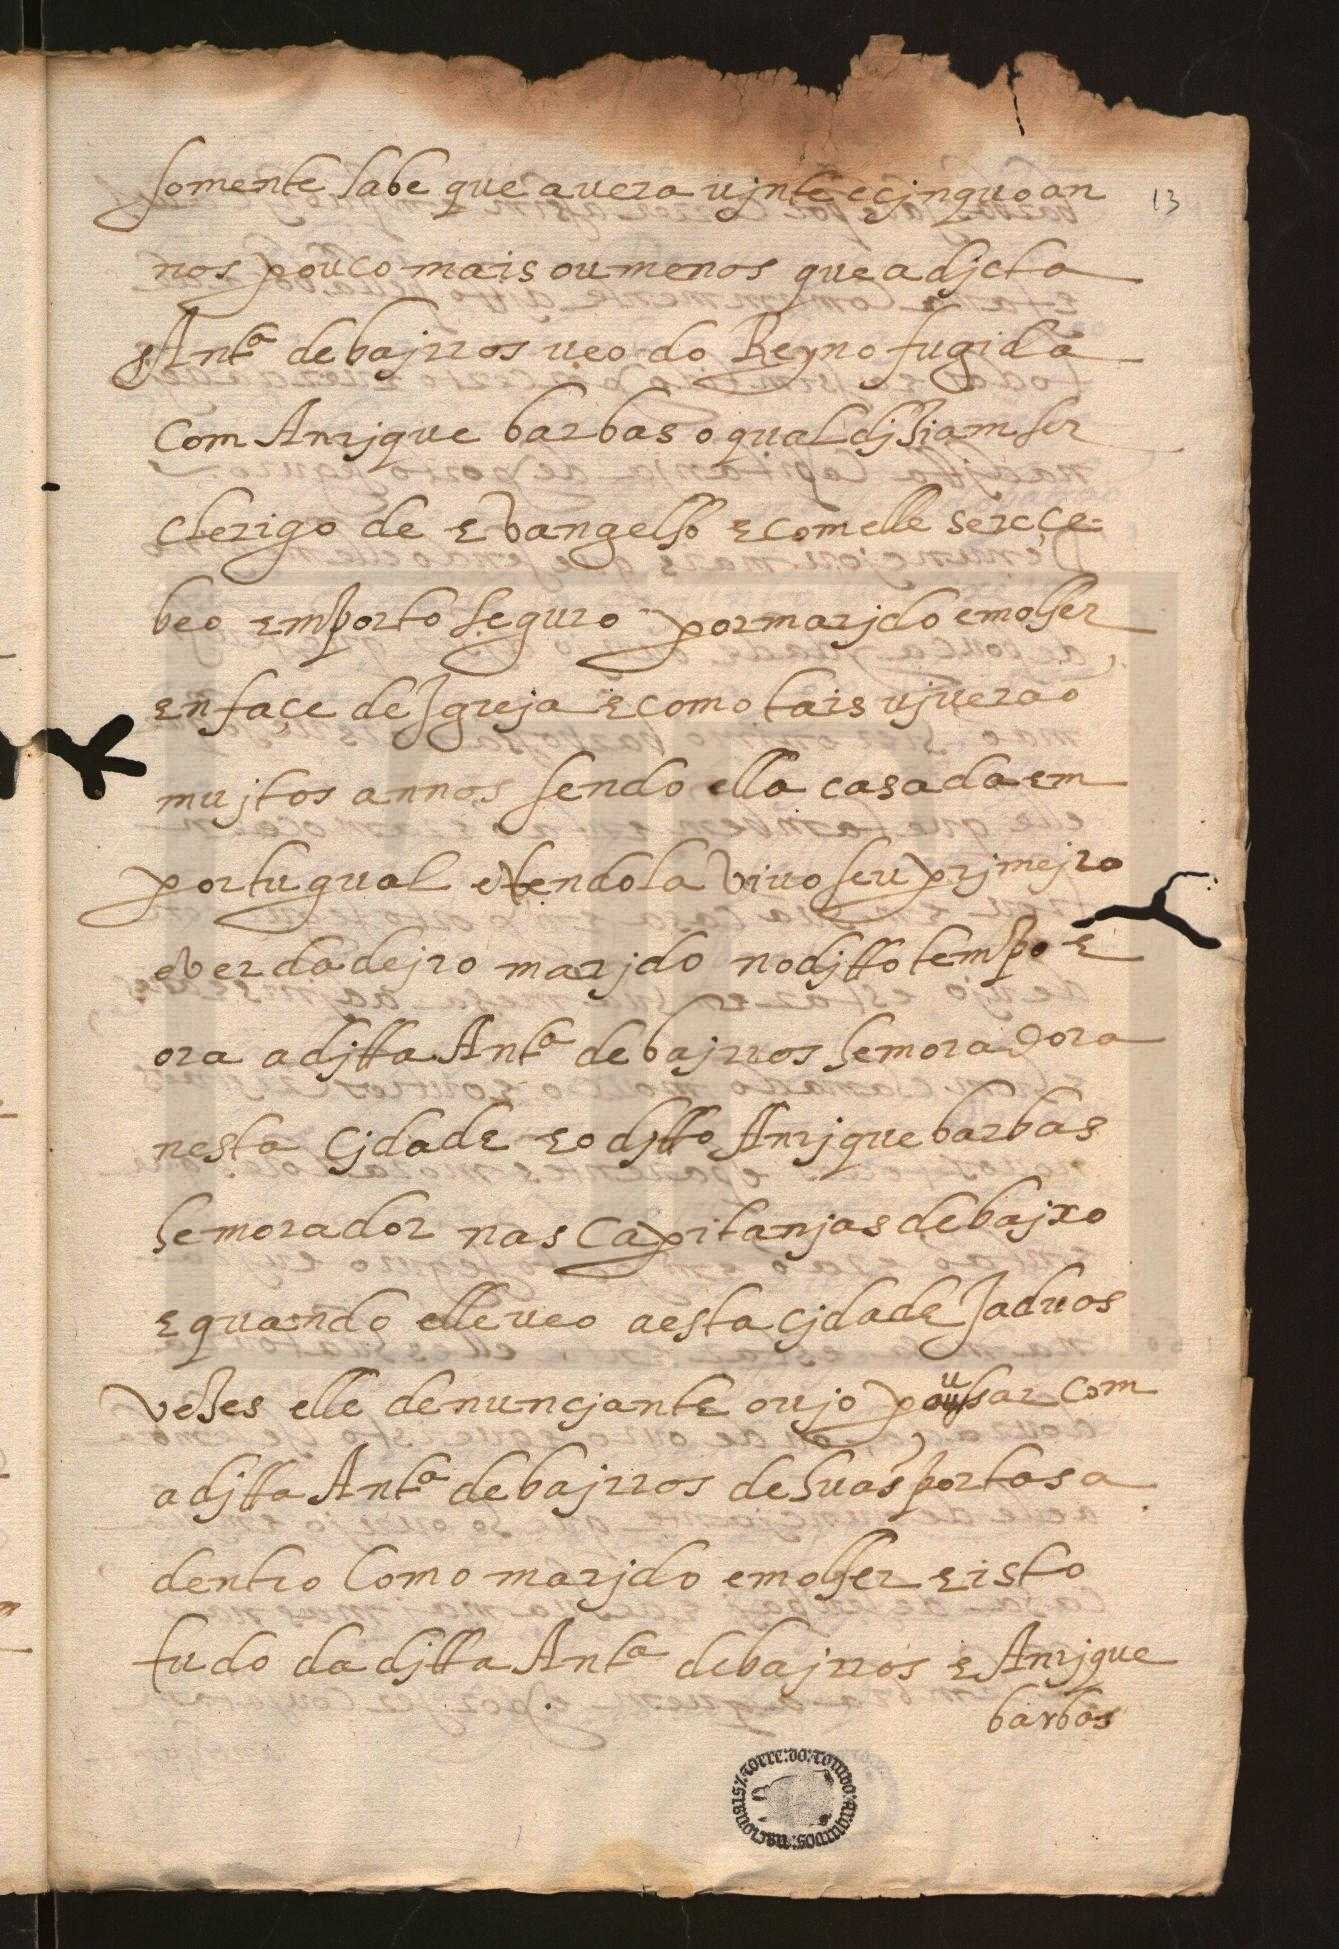 somente sabe que auera ujnte e cjnquo an
13
nos pouco mais ou menos que a djcta
Antª de bajrros ueo do Reyno fugida
com Anrjque barbas o qual djziam ser
clerigo de Evangelho e com elle se reçe-
beo em porto seguro por marjdo e molher
en façe de Jgreja e como tais ujuerão
mujtos annos sendo ella casada em
portugual e tendo la vivo seu prjmejro
e verdadejro marjdo no djtto tempo e
ora a djtta Antª de bajrros he moradora
nesta Cjdade e o djtto Anrjque barbas
he morador nas Capitanjas de bajxo
e quando elle ueo a esta Cjdade Ja duos
vezes elle denuncjante o ujo pousar com
a djtta Antª de bajrros de suas portas a
dentro como marjdo e molher e isto
tudo da djtta Antª de bajrros e Anrjque
barbas
TORRE:DO:TOMBO:ARQUIVOS:NACIONAIS